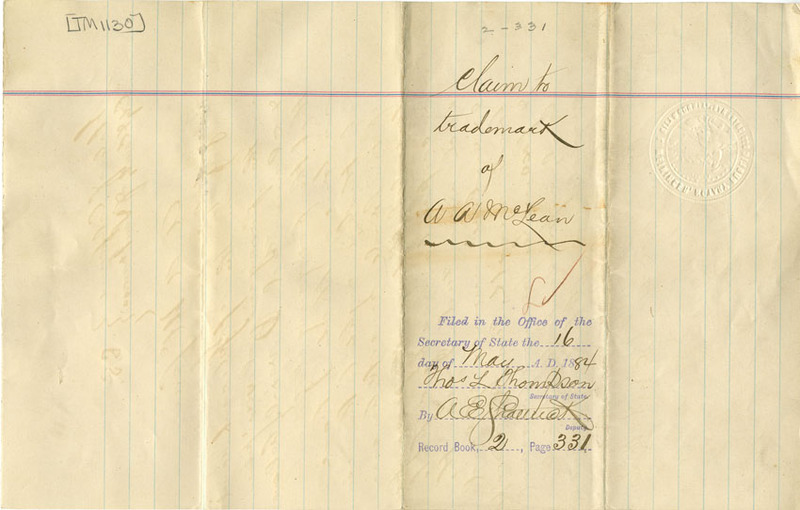 [TM1130]
2-331
Claim to
trademark
of
A A McLean
Filed in the Office of the
Secretary of State the 16
day of May A. D. 1884
Thos L Thompson
Secretary of State
By A E
Deputy
Record Book, 2, Page 331,